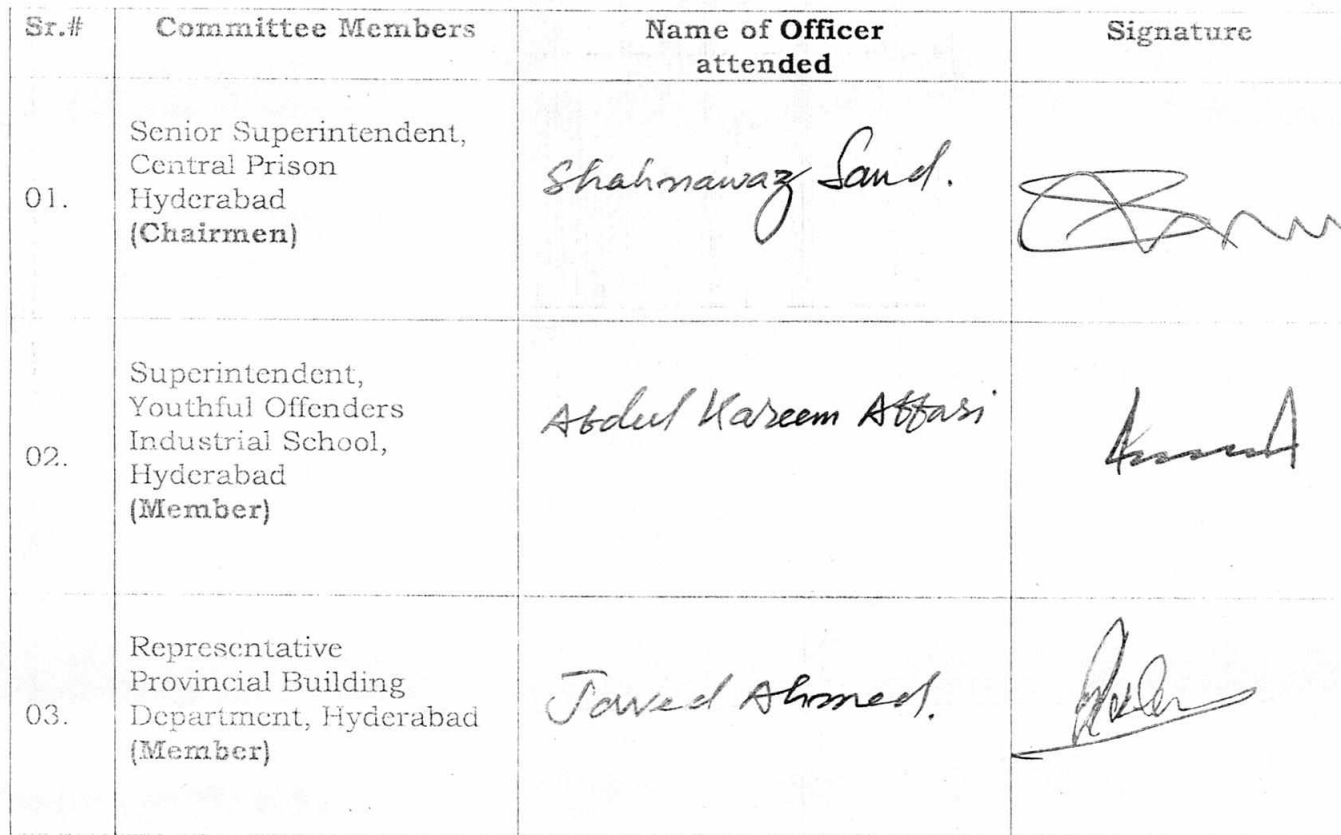 Sr.# Committee Members Name of Officer attended Signature
01. Senior Superintendent,
Central Prison
Hyderabad
(Chairmen)
Shahnawaz Sand.
02. Superintendent,
Youthful Offenders
Industrial School,
Hyderabad
(Member)
Abdul Kareem Abbasi
03. Representative
Provincial Building
Department, Hyderabad
(Member)
Javed Ahmed.